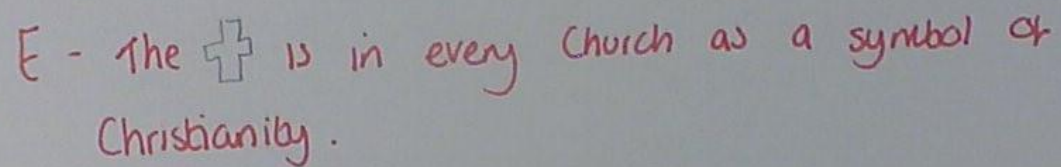 E - The ✞ is in every Church as a symbol of
Christianity.